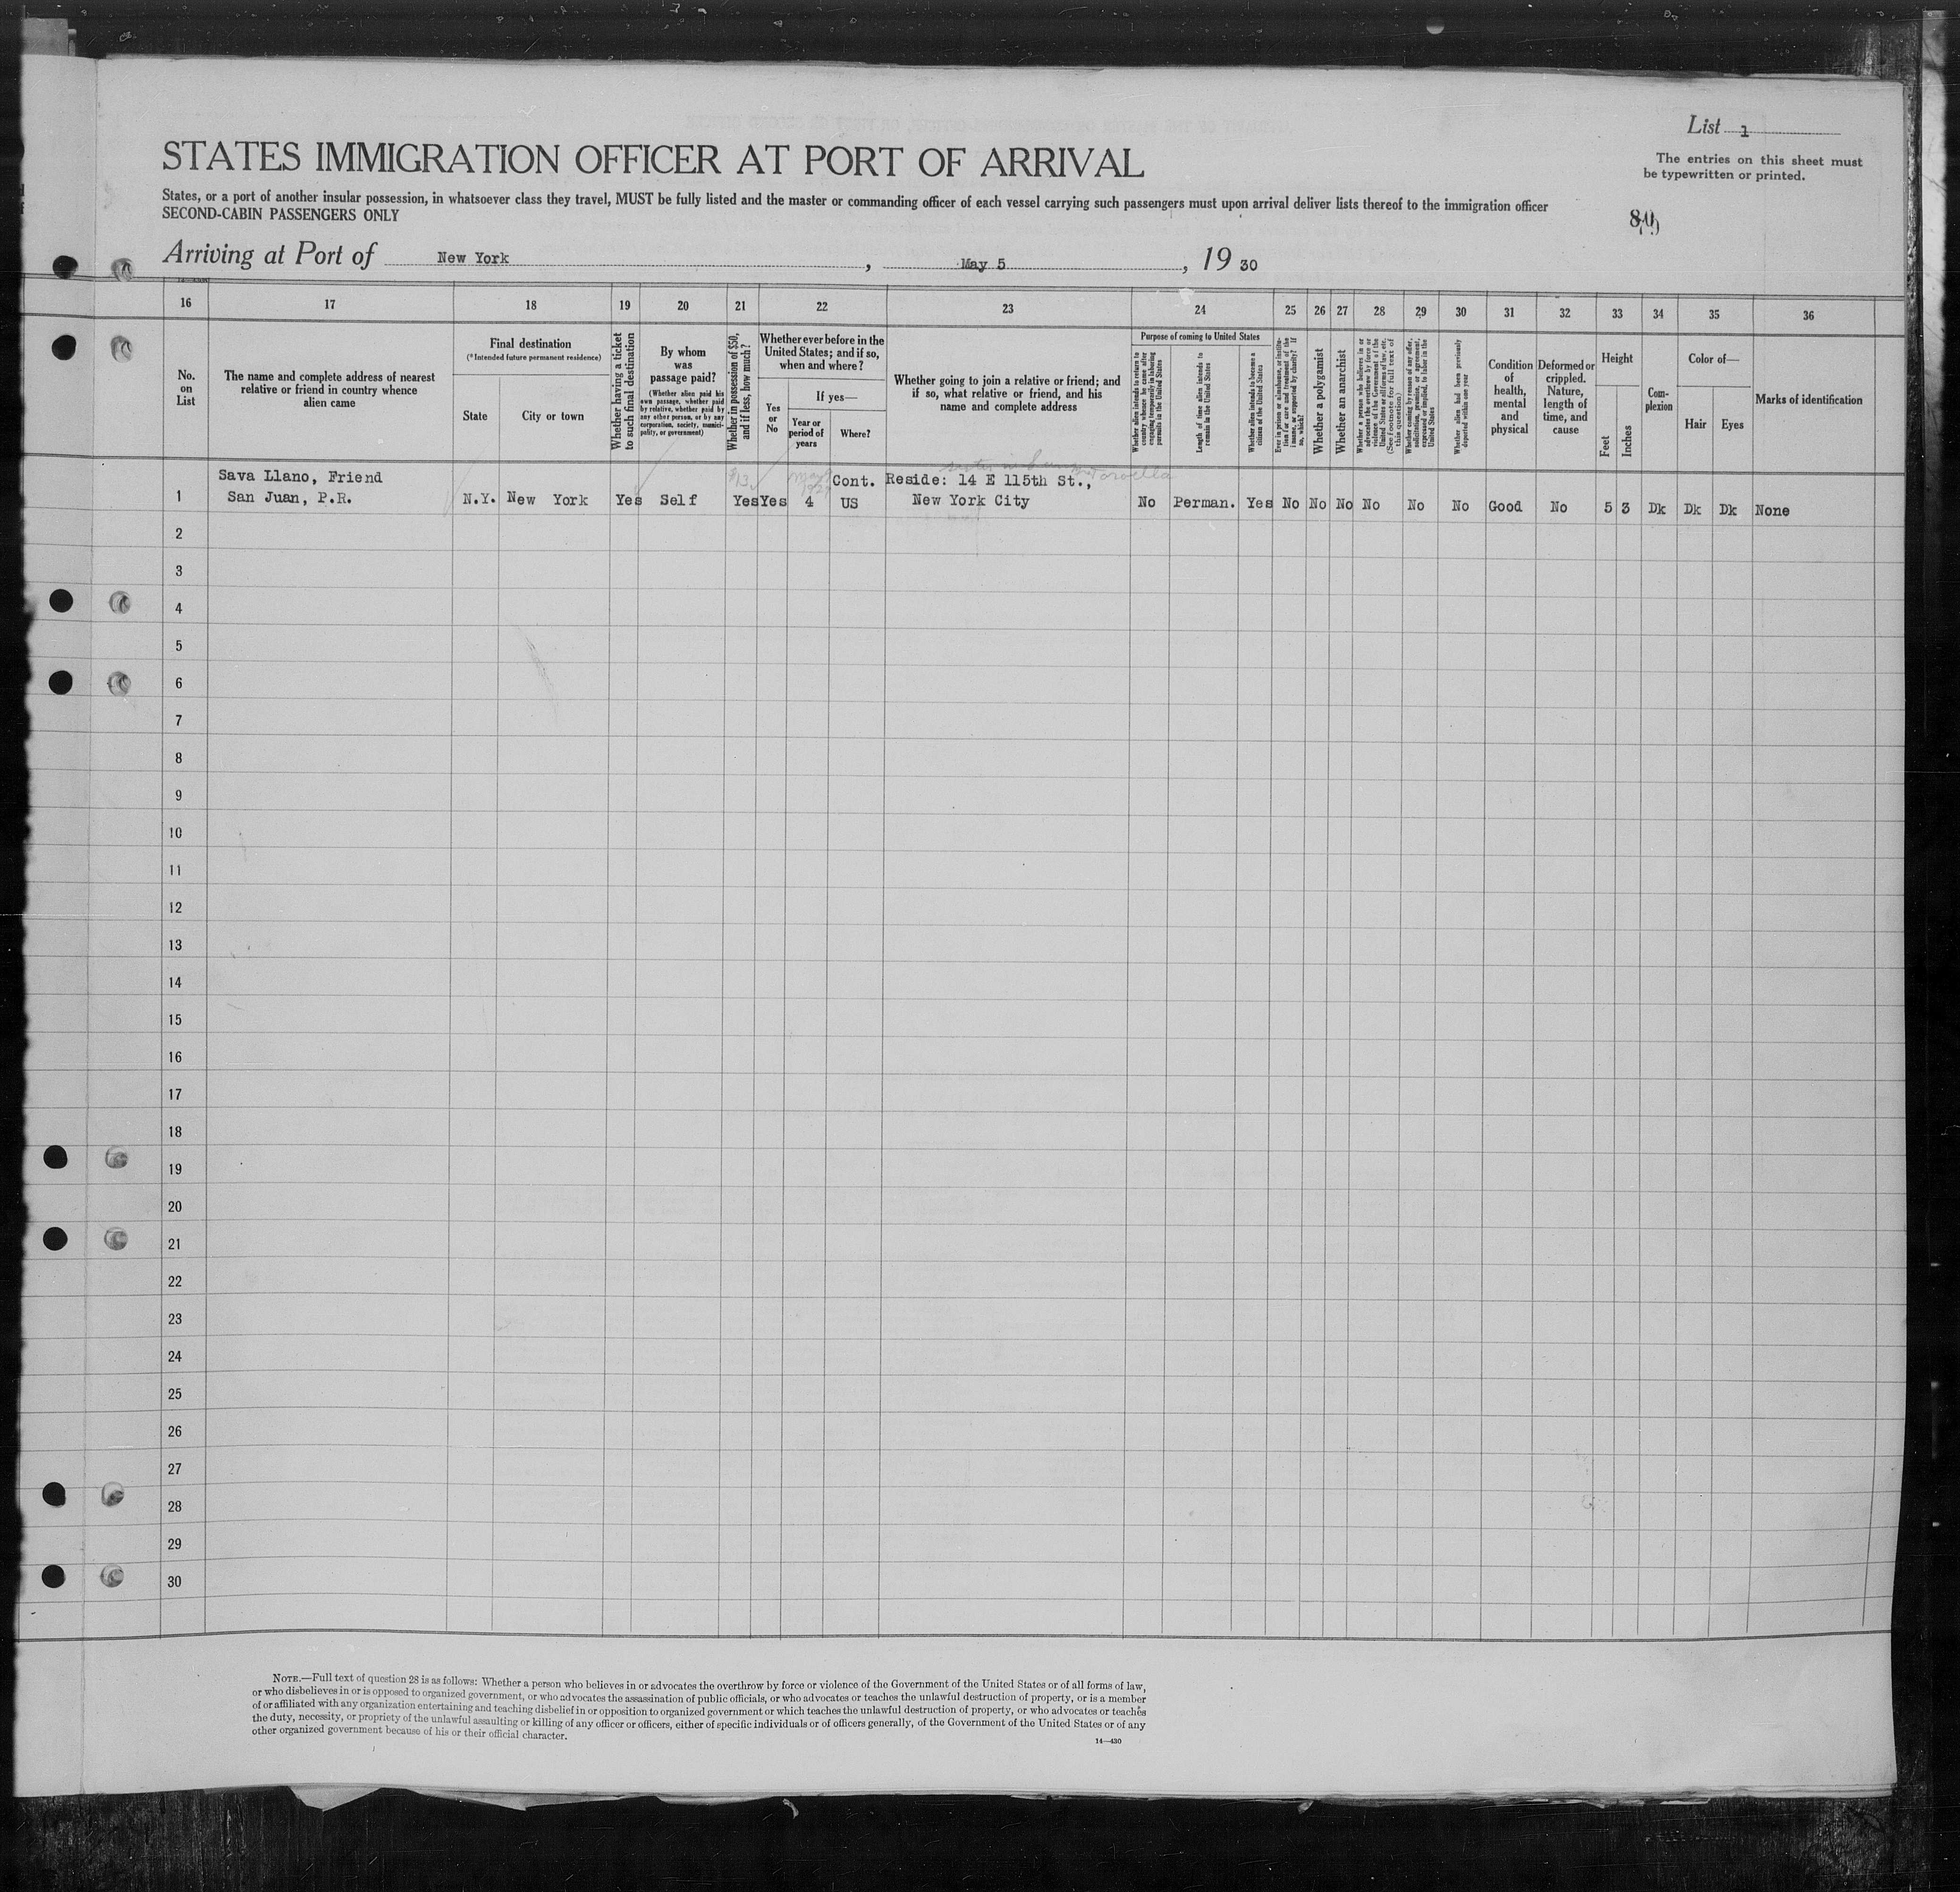 List 1
The entries on this sheet must
be typewritten or printed.
STATES IMMIGRATION OFFICER AT PORT OF ARRIVAL
States, or a port of another insular possession, in whatsoever class they travel, MUST be fully listed and the master or commanding officer of each vessel carrying such passengers must upon arrival deliver lists thereof to the immigration officer
SECOND-CABIN PASSENGERS ONLY
Arriving at Port of New York, May 5, 19 30
16 17 18 19 20 21 22 23 24 25 26 27 28 29 30 31 32 33 34 35 36
No.
on
List
The name and complete address of nearest
relative or friend in country whence
alien came
Final destination
(*Intended future permanent residence)
State
City or town
Whether having a ticket
to such final destination
By whom
was
passage paid?
(Whether alien paid his
own passage, whether paid
by relative, whether paid by
any other person, or by any
corporation, society, munici-
pality, or government)
Whether in possession of $50,
and if less, how much?
Whether ever before in the
United States; and if so,
when and where?
Yes
or
No
If yes—
Year or
period of
years
Where?
Whether going to join a relative or friend; and
if so, what relative or friend, and his
name and complete address
Purpose of coming to United States
Whether alien intends to return to
country whence he came after
engaging temporarily in laboring
pursuits in the United States
Length of time alien intends to
remain in the United States
Whether alien intends to become a
citizen of the United States
Ever in prison or almshouse, or institu-
tion for care and treatment of the
insane, or supported by charity? If
so, which?
Whether a polygamist
Whether an anarchist
Whether a person who believes in or
advocates the overthrow by force or
violence of the Government of the
United States or all forms of law, etc.
(See footnote for full text of
this question)
Whether coming by reason of any offer,
solicitation, promise, or agreement,
expressed or implied, to labor in the
United States
Whether alien had been previously
deported within one year
Condition
of
health,
mental
and
physical
Deformed or
crippled.
Nature,
length of
time, and
cause
Height
Feet
Inches
Com-
plexion
Color of—
Hair
Eyes
Marks of identification
Sava Llano, Friend Cont. Reside: 14 E 115th St.,
1 San Juan, P.R. N.Y. New York Yes Self Yes Yes 4 US New York City No Perman. Yes No No No No No No Good No 5 3 Dk Dk Dk None
2
3
4
5
6
7
8
9
10
11
12
13
14
15
16
17
18
19
20
21
22
23
24
25
26
27
28
29
30
NOTE.—Full text of question 28 is as follows: Whether a person who believes in or advocates the overthrow by force or violence of the Government of the United States or of all forms of law,
or who disbelieves in or is opposed to organized government, or who advocates the assassination of public officials, or who advocates or teaches the unlawful destruction of property, or is a member
of or affiliated with any organization entertaining and teaching disbelief in or opposition to organized government or which teaches the unlawful destruction of property, or who advocates or teaches
the duty, necessity, or propriety of the unlawful assaulting or killing of any officer or officers, either of specific individuals or of officers generally, of the Government of the United States or of any
other organized government because of his or their official character.
14—430